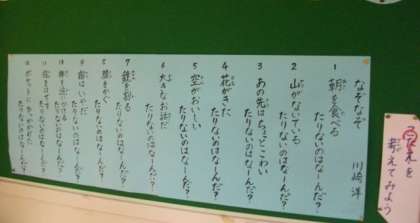 なぞなぞ 川崎 洋
1 朝を食べる
たりないのはなーんだ?
2 山がないている
たりないのはなーんだ?
3 あの先はちょっとこわい
たりないのはなーんだ?
4 花がきた
たりないのはなーんだ?
5 空がおいしい
たりないのはなーんだ?
6 大きなお話だ
たりないのはなーんだ?
7 鏡を割る
たりないのはなーんだ?
8
たりないのはなーんだ?
9
たりないのはなーんだ?
10
たりないのはなーんだ?
11
たりないのはなーんだ?
12 ポケットに
たりないのはなーんだ?
を
考えてみよう